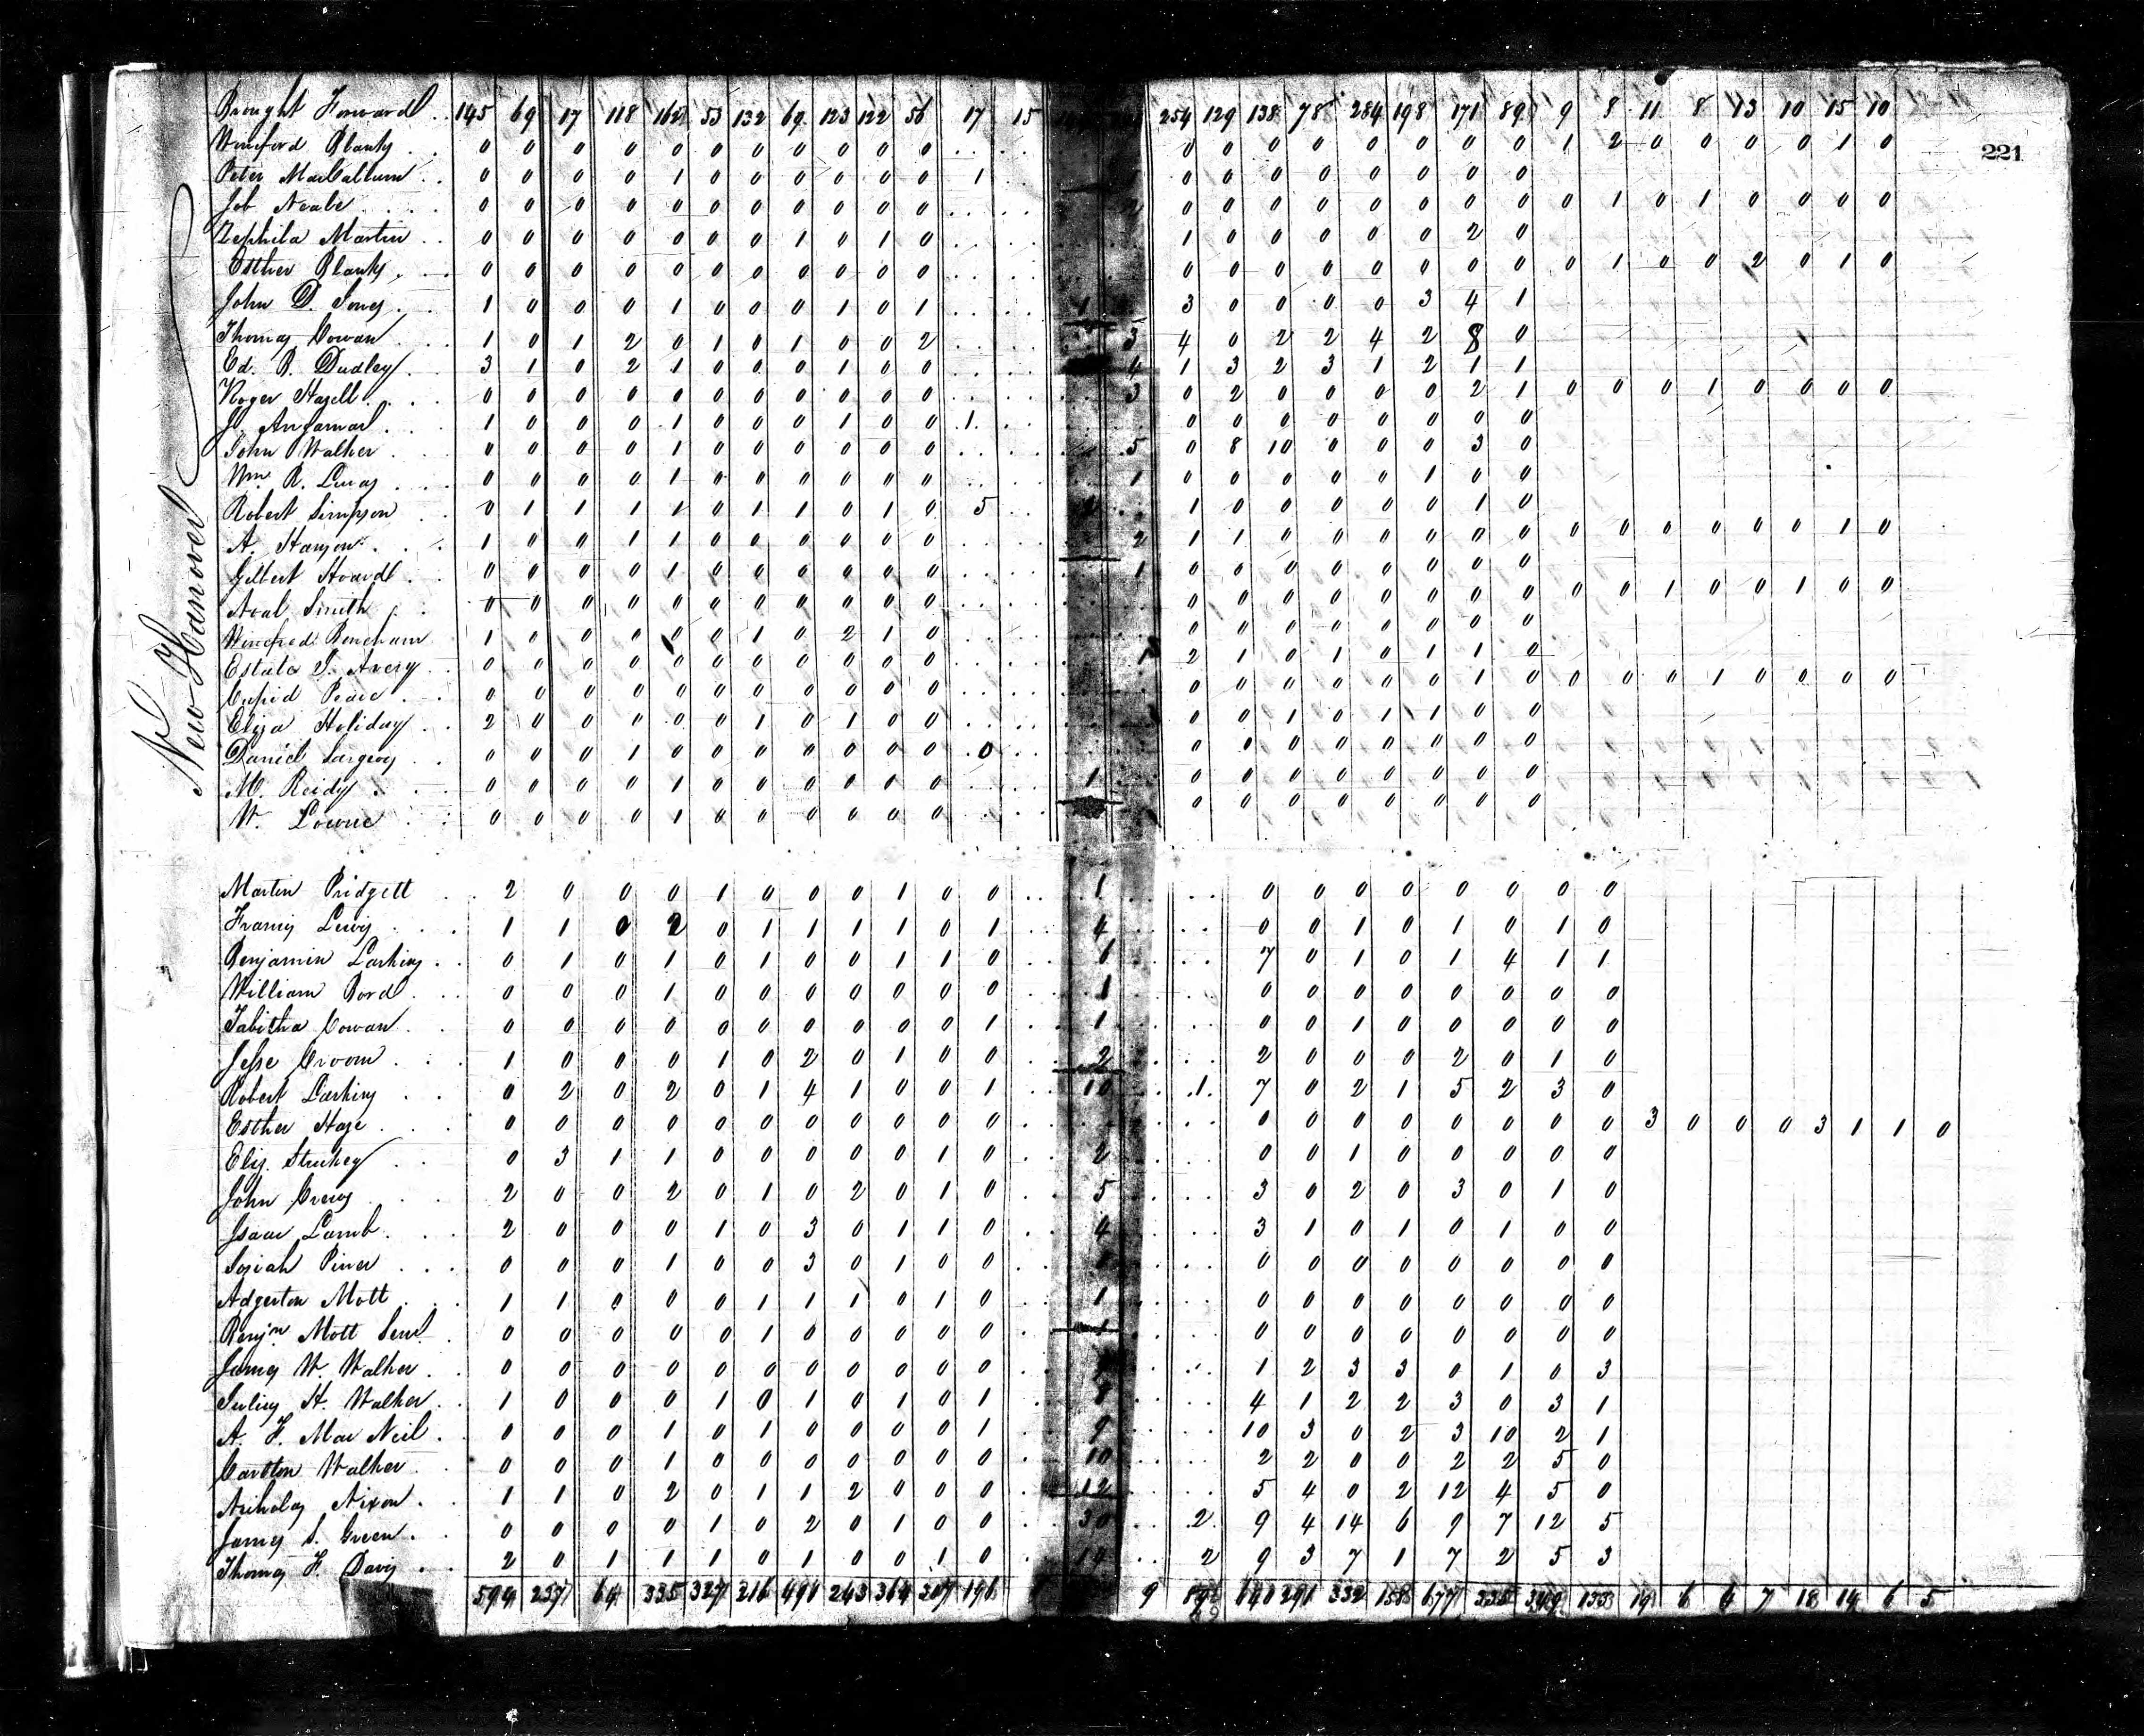 Brought Forward 145 69 17 118 162 53 132 69 123 122 56 17 15 254 129 138 78 284 198 171 89 9 8 11 8 13 10 15 10
221
Winiford Blanks 0 0 0 0 0 0 0 0 0 0 0 0 0 0 0 0 0 0 0 1 2 0 0 0 0 1 0
Peter MacCallum 0 0 0 0 1 0 0 0 0 0 0 1 0 0 0 0 0 0 0 0
Job Neale 0 0 0 0 0 0 0 0 0 0 0 2 0 0 0 0 0 0 0 0 0 1 0 1 0 0 0 0
Zephila Martin 0 0 0 0 0 0 0 1 0 1 0 1 0 0 0 0 0 2 0
Esther Blanks 0 0 0 0 0 0 0 0 0 0 0 0 0 0 0 0 0 0 0 0 1 0 0 2 0 1 0
John D. Jones 1 0 0 0 1 0 0 0 1 0 1 1 3 0 0 0 0 3 4 1
Thomas Cowan 1 0 1 2 0 1 0 1 0 0 2 3 4 0 2 2 4 2 8 0
Ed. B. Dudley 3 1 0 2 1 0 0 0 1 0 0 4 1 3 2 3 1 2 1 1
Roger Hazell 0 0 0 0 0 0 0 0 0 0 0 3 0 2 0 0 0 0 2 1 0 0 0 1 0 0 0 0
J. 1 0 0 0 1 0 0 0 1 0 0 1 0 0 0 0 0 0 0 0
John Walker 0 0 0 0 1 0 0 0 0 0 0 5 0 8 10 0 0 0 3 0
Wm. R. Lucas 0 0 0 0 1 0 0 0 0 0 0 1 0 0 0 0 0 1 0 0
Robert Simpson 0 1 1 1 1 0 1 1 0 1 0 5 1 0 0 0 0 0 1 0
A. 1 0 0 1 1 0 0 0 0 0 0 2 1 1 0 0 0 0 0 0 0 0 0 0 0 0 1 0
Gilbert 0 0 0 0 1 0 0 0 0 0 0 1 0 0 0 0 0 0 0 0
Smith 0 0 0 0 0 0 0 0 0 0 0 0 0 0 0 0 0 0 0 0 0 1 0 0 1 0 0
1 0 0 0 0 0 1 0 2 1 0 0 0 0 0 0 0 0 0
Estate S. Avery 0 0 0 0 0 0 0 0 0 0 0 2 1 0 1 0 1 1 0
Cupid Peace 0 0 0 0 0 0 0 0 0 0 0 0 0 0 0 0 0 1 0 0 0 0 1 0 0 0 0
Eliza Holiday 2 0 0 0 0 0 1 0 1 0 0 0 0 1 0 1 1 0 0
Daniel 0 0 0 1 0 0 0 0 0 0 0 0 0 0 0 0 0 0 0 0
M. Reidy 0 0 0 0 1 0 0 0 0 1 0 1 0 0 0 0 0 0 0 0
W. Lowrie 0 0 0 0 1 0 0 0 0 0 0 0 0 0 0 0 0 0 0
New Hanover
Martin Pridgett 2 0 0 0 1 0 0 0 1 0 0 1 0 0 0 0 0 0 0 0
Francis Lewis 1 1 0 2 0 1 1 1 1 0 1 4 0 0 1 0 1 0 1 0
Benjamin Larkins 0 1 0 1 0 1 0 0 1 1 0 6 7 0 1 0 1 4 1 1
William Bord 0 0 0 1 0 0 0 0 0 0 0 1 0 0 0 0 0 0 0 0
Tabitha Cowan 0 0 0 0 0 0 0 0 0 0 1 1 0 0 1 0 0 0 0 0
Jesse Croom 1 0 0 0 1 0 2 0 1 0 0 2 2 0 0 0 2 0 1 0
Robert Larkins 0 2 0 2 0 1 4 1 0 0 1 10 1 7 0 2 1 5 2 3 0
Esther Haze 0 0 0 0 0 0 0 0 0 0 0 0 0 0 0 0 0 0 0 3 0 0 0 3 1 1 0
Eliz. Stuckey 0 3 1 1 0 0 0 0 0 1 0 2 0 0 1 0 0 0 0 0
John Crews 2 0 0 2 0 1 0 2 0 1 0 5 3 0 2 0 3 0 1 0
Isaac Lamb 2 0 0 0 1 0 3 0 1 1 0 4 3 1 0 1 0 1 0 0
Josiah Piner 0 0 0 1 0 0 3 0 1 0 0 1 0 0 0 0 0 0 0 0
Adgerton Mott 1 1 0 0 0 1 1 1 0 1 0 1 0 0 0 0 0 0 0 0
Benjn Mott Senr. 0 0 0 0 0 1 0 0 0 0 0 1 0 0 0 0 0 0 0 0
James W. Walker 0 0 0 0 0 0 0 0 0 0 0 1 2 3 3 0 1 0 3
Julius H. Walker 1 0 0 0 1 0 1 0 1 0 1 8 4 1 2 2 3 0 3 1
A. F. Mac Neil 0 0 0 1 0 1 0 0 0 0 1 9 10 3 0 2 3 10 2 1
Carlton Walker 0 0 0 1 0 0 0 0 0 0 0 10 2 2 0 0 2 2 5 0
Nicholas Nixon 1 1 0 2 0 1 1 2 0 0 0 12 5 4 0 2 12 4 5 0
James S. Green 0 0 0 0 1 0 2 0 1 0 0 30 2 9 4 14 6 9 7 12 5
Thomas F. Davis 2 0 1 1 1 0 1 0 0 1 0 14 2 9 3 7 1 7 2 5 3
594 237 64 335 327 216 491 243 364 307 196 9 640 291 332 158 677 335 349 153 19 6 6 7 18 14 6 5